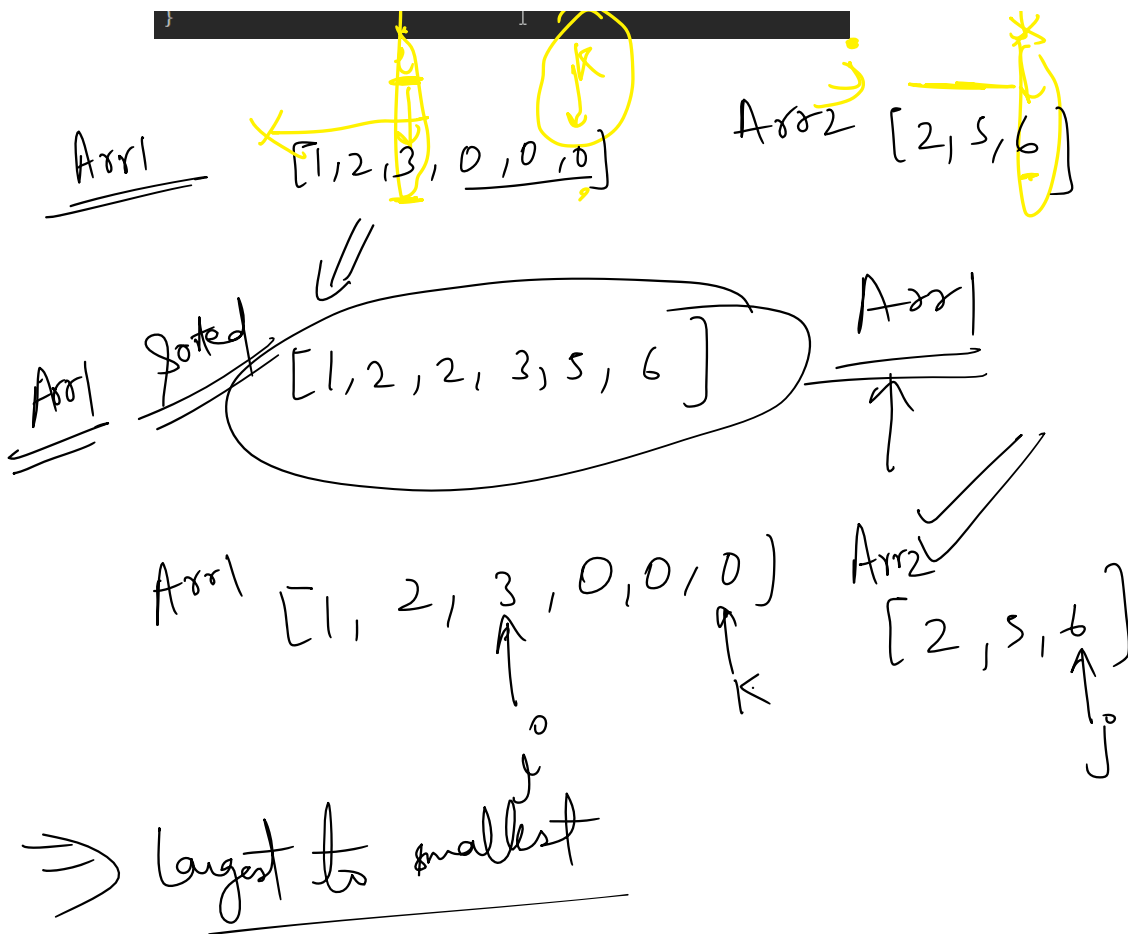 }
i K
Arr1 [1, 2, 3, 0, 0, 0] Arr2 j [2, 5, 6]
Arr1 Sorted [1, 2, 2, 3, 5, 6] Arr1
Arr1 [1, 2, 3, 0, 0, 0] Arr2
[2, 5, 6]
K
i j
⇒ Largest to smallest